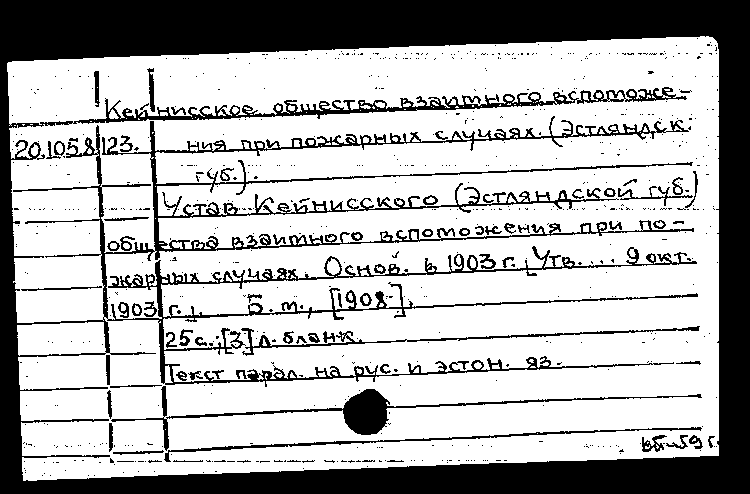 Кейнисское общество взаимного вспоможе-
20.105.8.123. ния при пожарных случаях. (Эстляндск.
губ.).
Устав Кейнисского (Эстляндской губ.)
общества взаимного вспоможения при по-
жарных случаях. Основ. в 1903 г., [Утв.... 9 окт.
1903 г.]. Б. м., [1908].
25 с.; [3] л. бланк.
Текст парал. на рус. и эстон. яз.